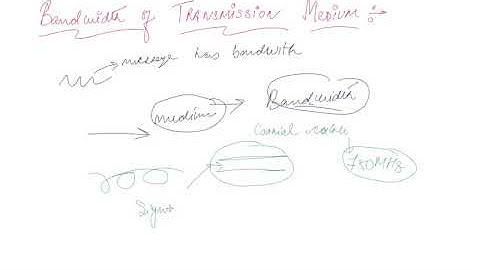 BANDWIDTH of TRANSMISSION MEDIUM :-
message has bandwith
medium
Bandwidth
Coaxial cable
750MHz
Signal